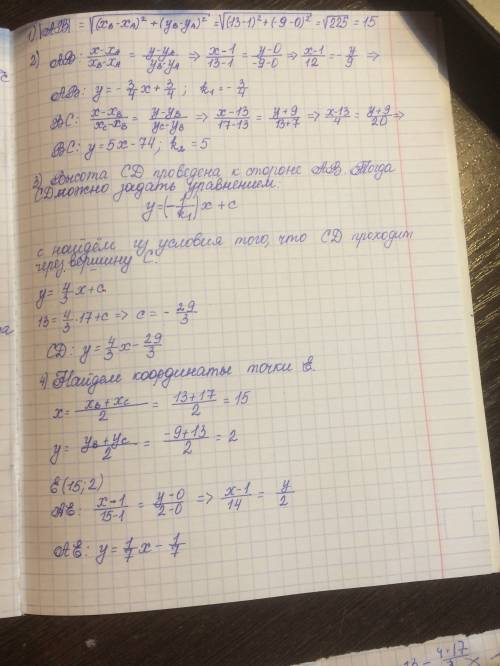 1) |AB| = √((x_B-x_A)² + (y_B-y_A)²) = √((13-1)²+(-9-0)²) = √225 = 15
2) AB: (x-x_A)/(x_B-x_A) = (y-y_A)/(y_B-y_A) ⇒ (x-1)/(13-1) = (y-0)/(-9-0) ⇒ (x-1)/12 = -y/9 ⇒
AB: y = -3/4 x + 3/4; k₁ = -3/4
BC: (x-x_B)/(x_C-x_B) = (y-y_B)/(y_C-y_B) ⇒ (x-13)/(17-13) = (y+9)/(13+7) ⇒ (x-13)/4 = (y+9)/20 ⇒
BC: y = 5x - 74; k₂ = 5
3) Высота CD проведена к стороне AB. Тогда
CD можно задать уравнением:
y = (-1/k₁)x + c
c найдём из условия того, что CD проходит
через вершину C.
y = 4/3 x + c
13 = 4/3 · 17 + c ⇒ c = -29/3
CD: y = 4/3 x - 29/3
4) Найдем координаты точки E.
x = (x_B + x_C)/2 = (13+17)/2 = 15
y = (y_B + y_C)/2 = (-9+13)/2 = 2
E(15; 2)
AE: (x-1)/(15-1) = (y-0)/(2-0) ⇒ (x-1)/14 = y/2
AE: y = 1/7 x - 1/7